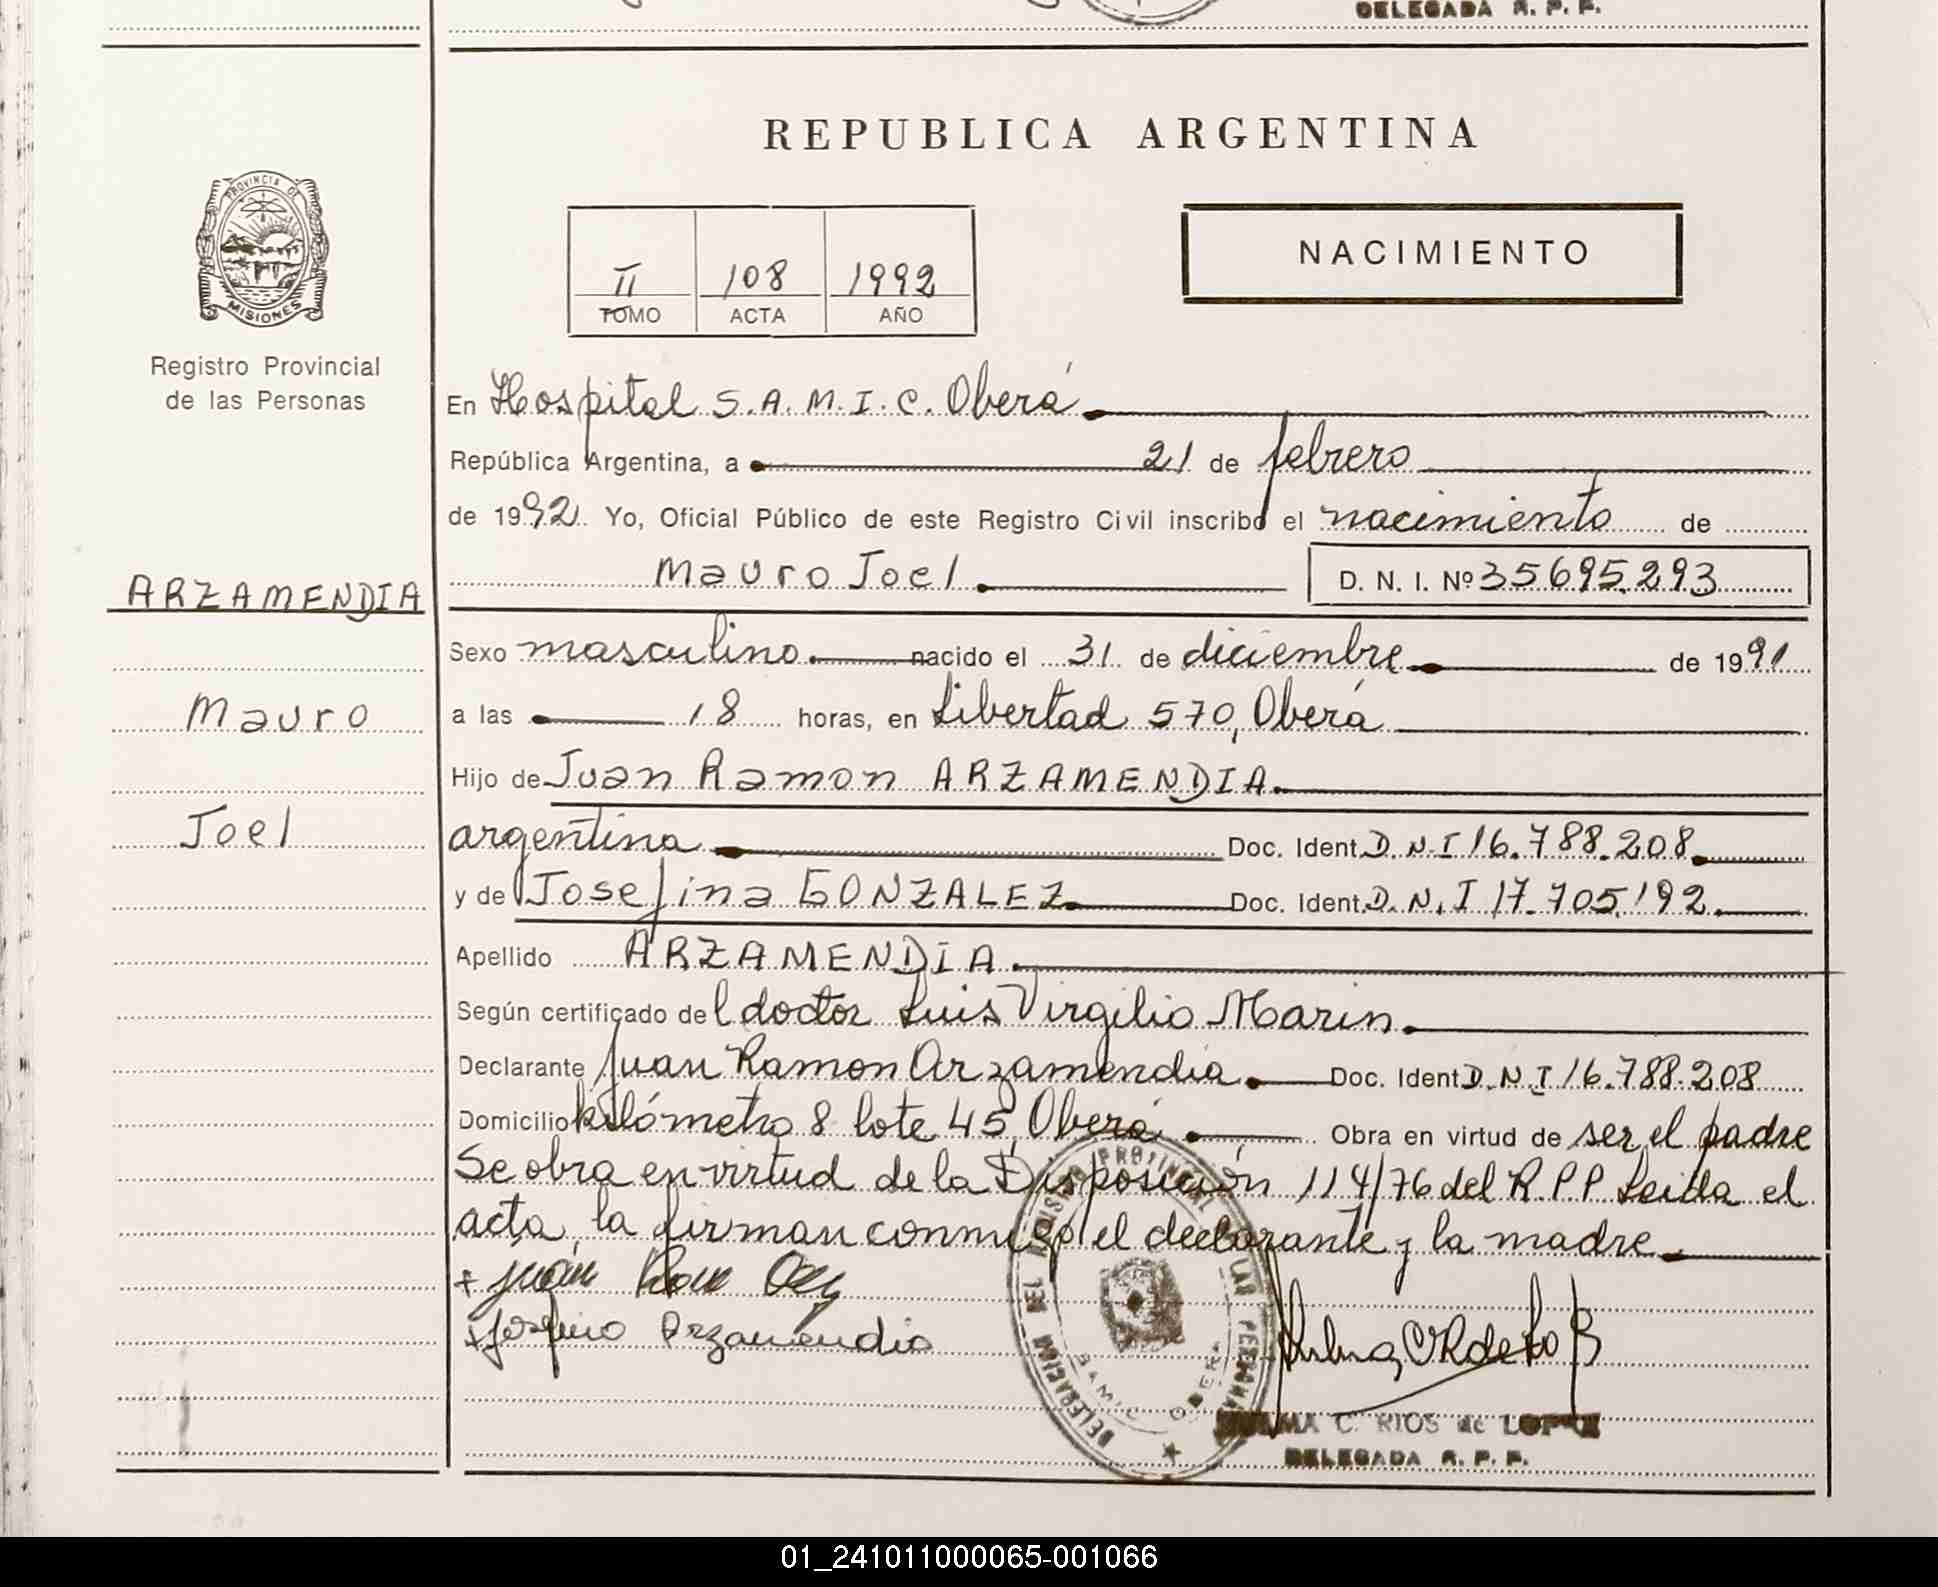 DELEGADA R. P. P.
REPUBLICA ARGENTINA
PROVINCIA DE
MISIONES
Registro Provincial
de las Personas
II 108 1992
TOMO ACTA AÑO
NACIMIENTO
En Hospital S.A.M.I.C. Oberá
República Argentina, a 21 de febrero
de 1992. Yo, Oficial Público de este Registro Civil inscribo el nacimiento de
Mauro Joel D. N. I. Nº 35695.293
ARZAMENDIA
Mauro
Joel
Sexo masculino. nacido el 31 de diciembre de 1991
a las 18 horas, en Libertad 570, Oberá
Hijo de Juan Ramon ARZAMENDIA
argentina Doc. Ident. D.N.I 16.788.208
y de Josefina GONZALEZ Doc. Ident. D.N.I 17.705.192
Apellido ARZAMENDIA
Según certificado del doctor Luis Virgilio Marin
Declarante Juan Ramon Arzamendia Doc. Ident D.N.I 16.788.208
Domicilio kilómetro 8 lote 45, Oberá Obra en virtud de ser el padre
Se obra en virtud de la Disposición 114/76 del R.P.P. Leida el
acta, la firman conmigo el declarante y la madre
+ Juan
+ Josefina Arzamendia
DELEGACION DEL REGISTRO PROVINCIAL DE LAS PERSONAS
SAMIC OBERA
C. RIOS de LOPEZ
DELEGADA R. P. P.
01_241011000065-001066